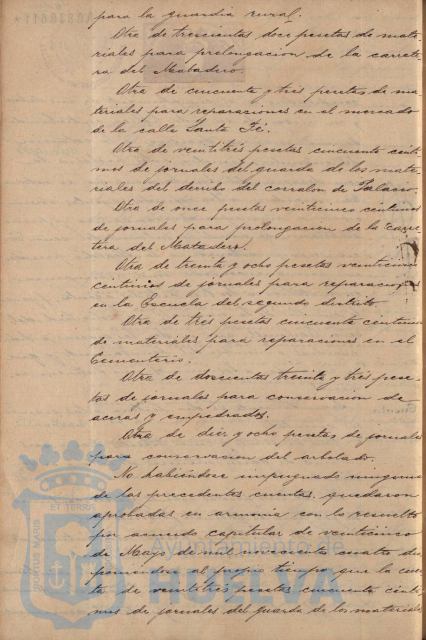 para la guardia rural.
Otra de trescientas doce pesetas de mate-
riales para prolongacion de la carrete-
ra del Matadero.
Otra de cincuenta y tres pesetas de ma-
teriales para reparaciones en el mercado
de la calle Santa Fé.
Otra de veintitrés pesetas cincuenta cénti-
mos de jornales del guarda de los mate-
riales del derribo del corralon de Palacio.
Otra de once pesetas veinticinco céntimos
de jornales para prolongacion de la carre-
tera del Matadero.
Otra de treinta y ocho pesetas veinticinco
céntimos de jornales para reparaciones
en la Escuela del segundo distrito
Otra de tres pesetas cincuenta céntimos
de materiales para reparaciones en el
Cementerio.
Otra de doscientas treinta y tres pese-
tas de jornales para conservacion de
aceras y empedrados.
Otra de diez y ocho pesetas de jornales
para conservacion del arbolado.
No habiéndose impugnado ninguna
de las precedentes cuentas, quedaron
aprobadas en armonia con lo resuelto
por acuerdo capitular de veinticinco
de Mayo de mil novecientos cuatro dis-
poniendose al propio tiempo que la cuen-
ta de veintitrés pesetas cincuenta cénti-
mos de jornales del guarda de los materiales
PORTUS MARIS
ET TERRAE
Ayuntamiento de
HUELVA